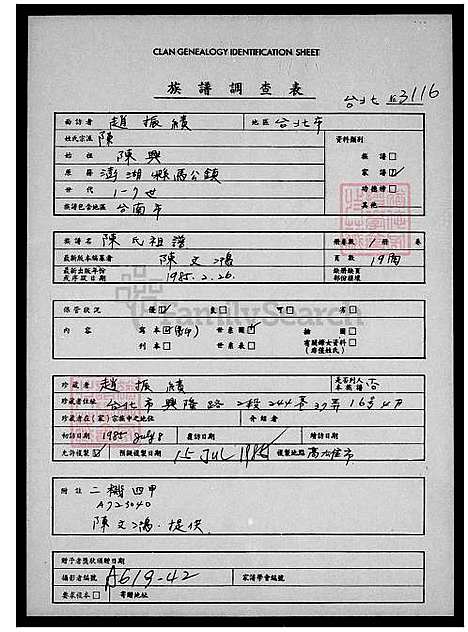 CLAN GENEALOGY IDENTIFICATION SHEET
族譜調查表
台北 3116
面訪者 趙振績 地區 台北市
姓氏宗派 陳 資料類別
始祖 陳興 族譜□
原籍 澎湖縣馬公鎮 家譜☑
世代 1-7世
族譜包含地區 台南市 其他
族譜名 陳氏祖譜 1 冊 卷
最新版本編纂者 陳文鴻 頁數 19
最新出版年份或序跋日期 1985.2.26. 缺冊缺頁部份種壞
FamilySearch
保管狀況 優☑ 良□ 可□ 劣□
內容 寫本 世系圖☑ 繪圖□
刊本□ 世系表□ 有關婦女資料(非僅姓氏)□
珍藏者 趙振績 是否列入本族譜 否
珍藏者住址 台北市興隆路2段244巷37弄16号4F
珍藏者在(家)宗族中之地位 介紹者
初訪日期 1985 July 8 覆訪日期 續訪日期
允許複製☑ 預擬複製日期 15 JUL 1985 複製地點 高雄市
附註 二機四甲
A723040
陳文鴻.提供
贈予者獎狀頒贈日期
攝影者編號 A619-42 家譜學會編號
要求復本□ 寄贈地址